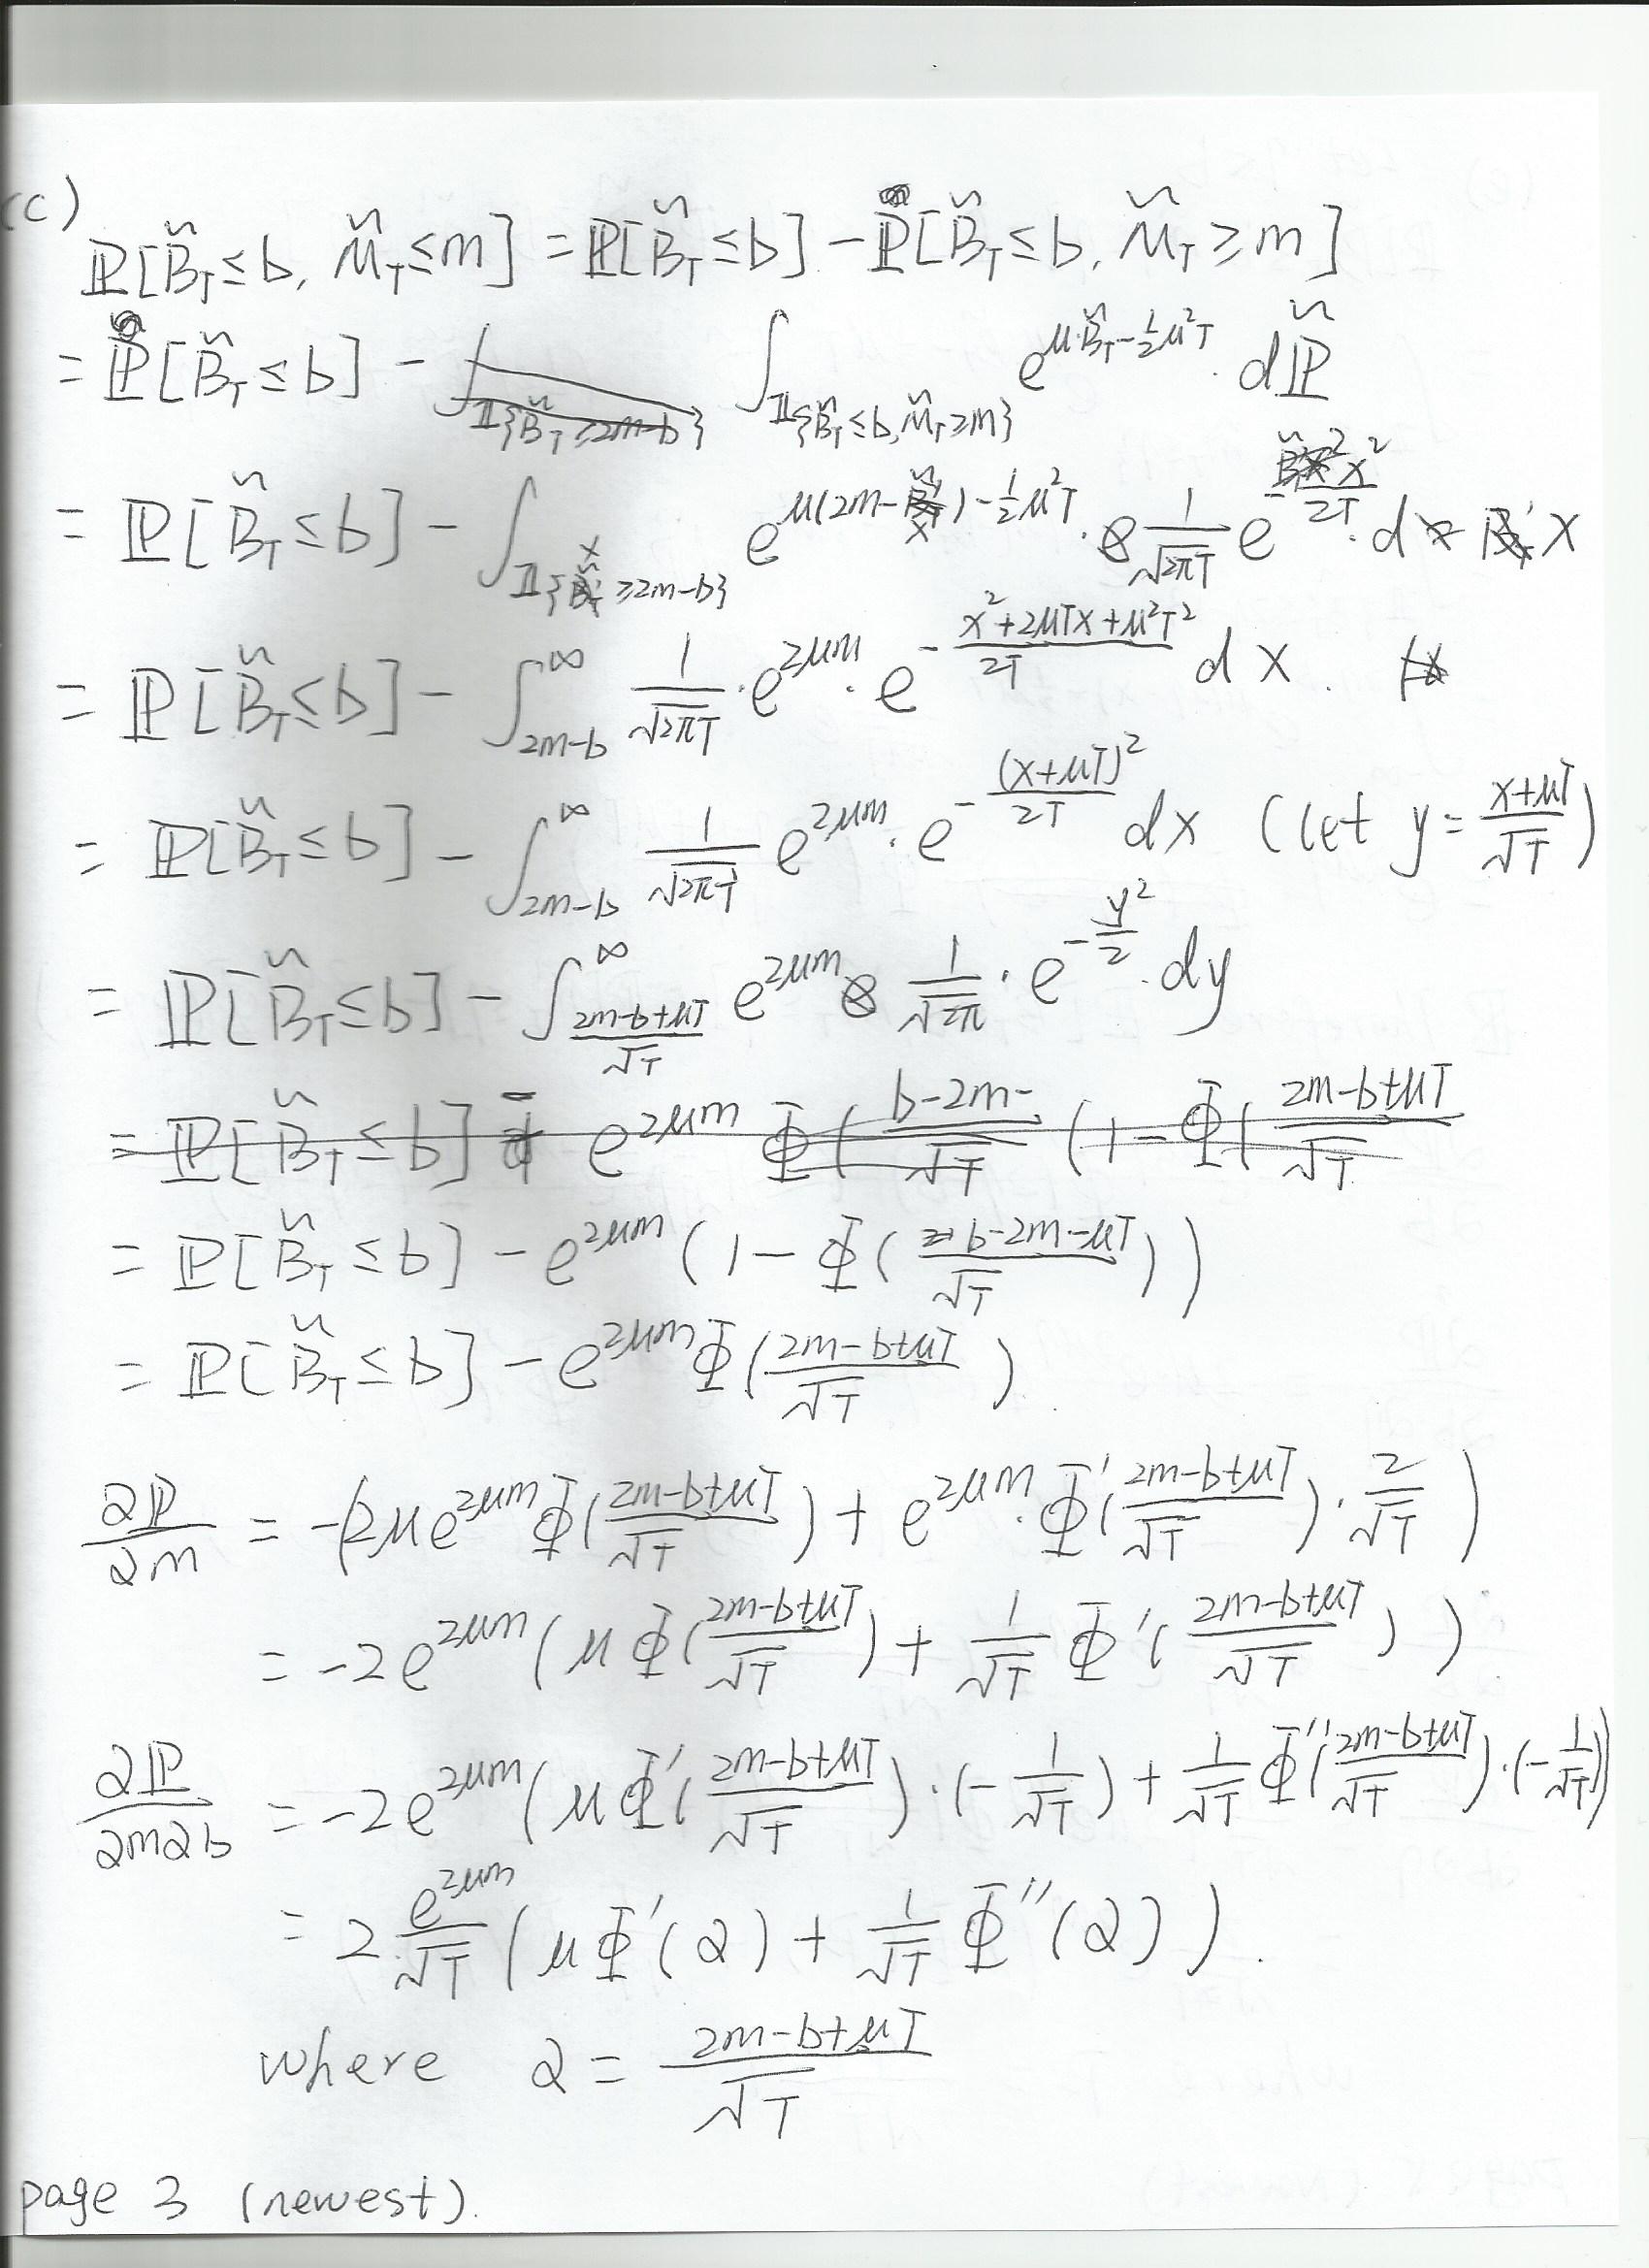 (c)
ℙ[B̃_T ≤ b, M̃_T ≤ m] = ℙ[B̃_T ≤ b] − ℙ[B̃_T ≤ b, M̃_T ≥ m]
= ℙ[B̃_T ≤ b] − ∫_{𝟙{B̃_T ≤ b, M̃_T ≥ m}} e^{μ·B̃_T − ½μ²T} · dℙ̃
= ℙ[B̃_T ≤ b] − ∫_{𝟙{x ≥ 2m−b}} e^{μ(2m−x) − ½μ²T} · 1/√(2πT) e^{−x²/2T} · dx
= ℙ[B̃_T ≤ b] − ∫_{2m−b}^{∞} 1/√(2πT) · e^{2μm} · e^{−(x²+2μTx+μ²T²)/2T} dx.
= ℙ[B̃_T ≤ b] − ∫_{2m−b}^{∞} 1/√(2πT) e^{2μm} · e^{−(x+μT)²/2T} dx (let y = (x+μT)/√T)
= ℙ[B̃_T ≤ b] − ∫_{(2m−b+μT)/√T}^{∞} e^{2μm} 1/√(2π) · e^{−y²/2} · dy
= ℙ[B̃_T ≤ b] e^{2μm} Φ((b−2m−)/√T (1−Φ((2m−b+μT)/√T
= ℙ[B̃_T ≤ b] − e^{2μm} (1 − Φ((b−2m−μT)/√T))
= ℙ[B̃_T ≤ b] − e^{2μm} Φ((2m−b+μT)/√T).
∂ℙ/∂m = −(2μe^{2μm} Φ((2m−b+μT)/√T) + e^{2μm} · Φ'((2m−b+μT)/√T) · 2/√T)
= −2e^{2μm} (μΦ((2m−b+μT)/√T) + 1/√T Φ'((2m−b+μT)/√T))
∂ℙ/∂m∂b = −2e^{2μm} (μΦ'((2m−b+μT)/√T) · (−1/√T) + 1/√T Φ''((2m−b+μT)/√T) · (−1/√T))
= 2 e^{2μm}/√T (μΦ'(α) + 1/√T Φ''(α)).
where α = (2m−b+μT)/√T
page 3 (newest).